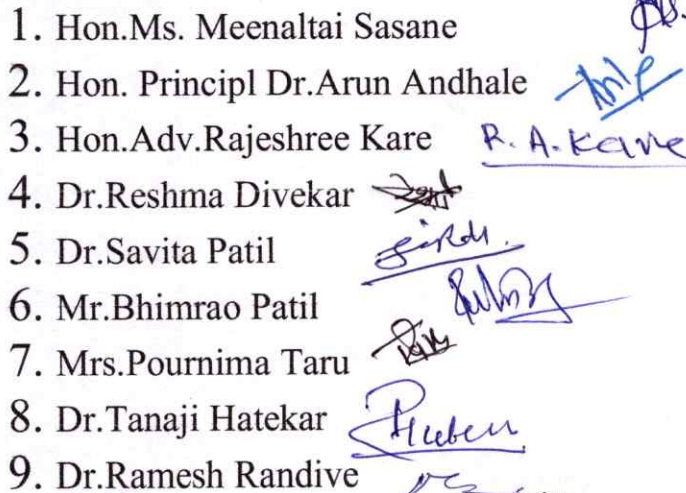 1. Hon.Ms. Meenaltai Sasane
2. Hon. Principl Dr.Arun Andhale
3. Hon.Adv.Rajeshree Kare R. A. Kare
4. Dr.Reshma Divekar
5. Dr.Savita Patil
6. Mr.Bhimrao Patil
7. Mrs.Pournima Taru
8. Dr.Tanaji Hatekar
9. Dr.Ramesh Randive